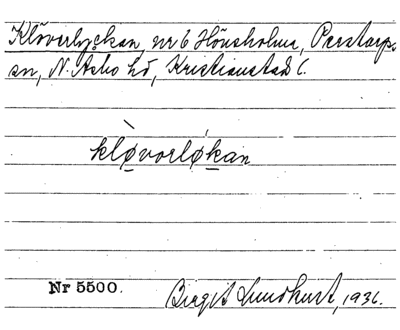 Klöverlyckan, nr 6 Hönsholma, Perstorps
sn, N. Åsbo hd, Kristianstads l.
klø̀vorlǿkan
Nr 5500.
Birgit Lundkvist, 1936.